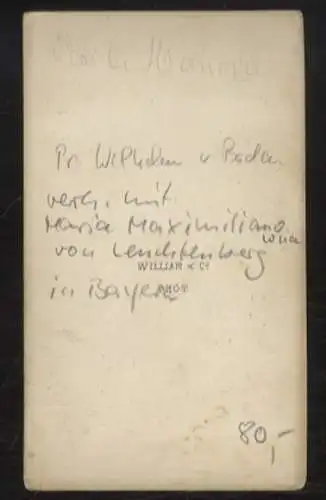 Pr. Wilhelm v Baden
verh. mit
Maria Maximilianowna
von Leuchtenberg
WILLIAM & Cº
in Bayern
80,-